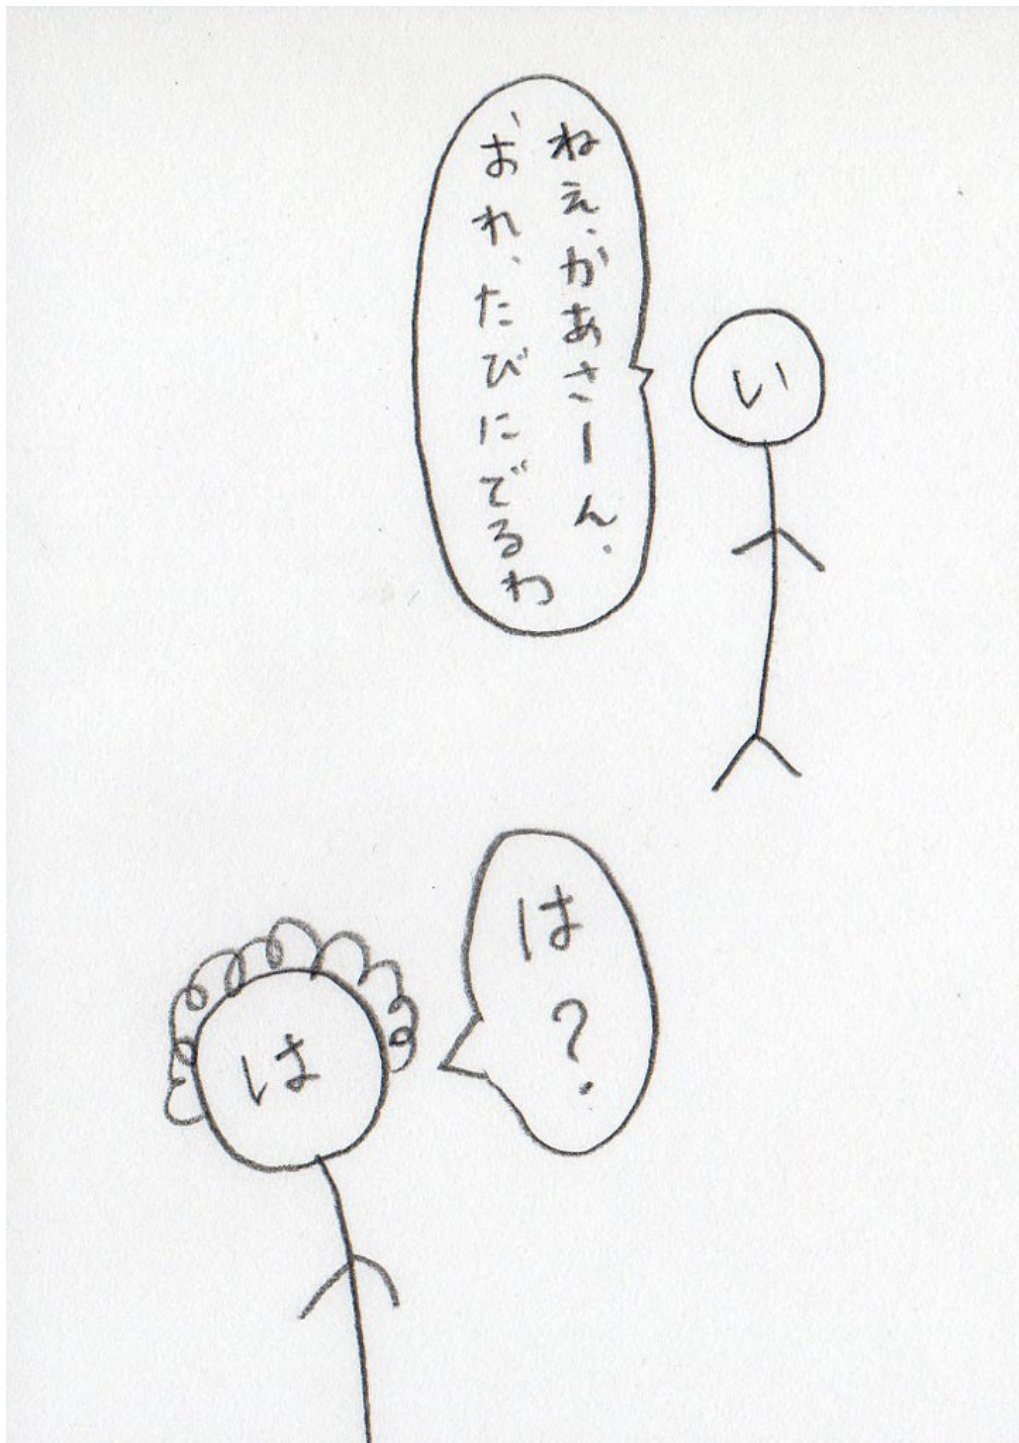 ねえ、かあさーん、
おれ、たびにでるわ
い
は?
は